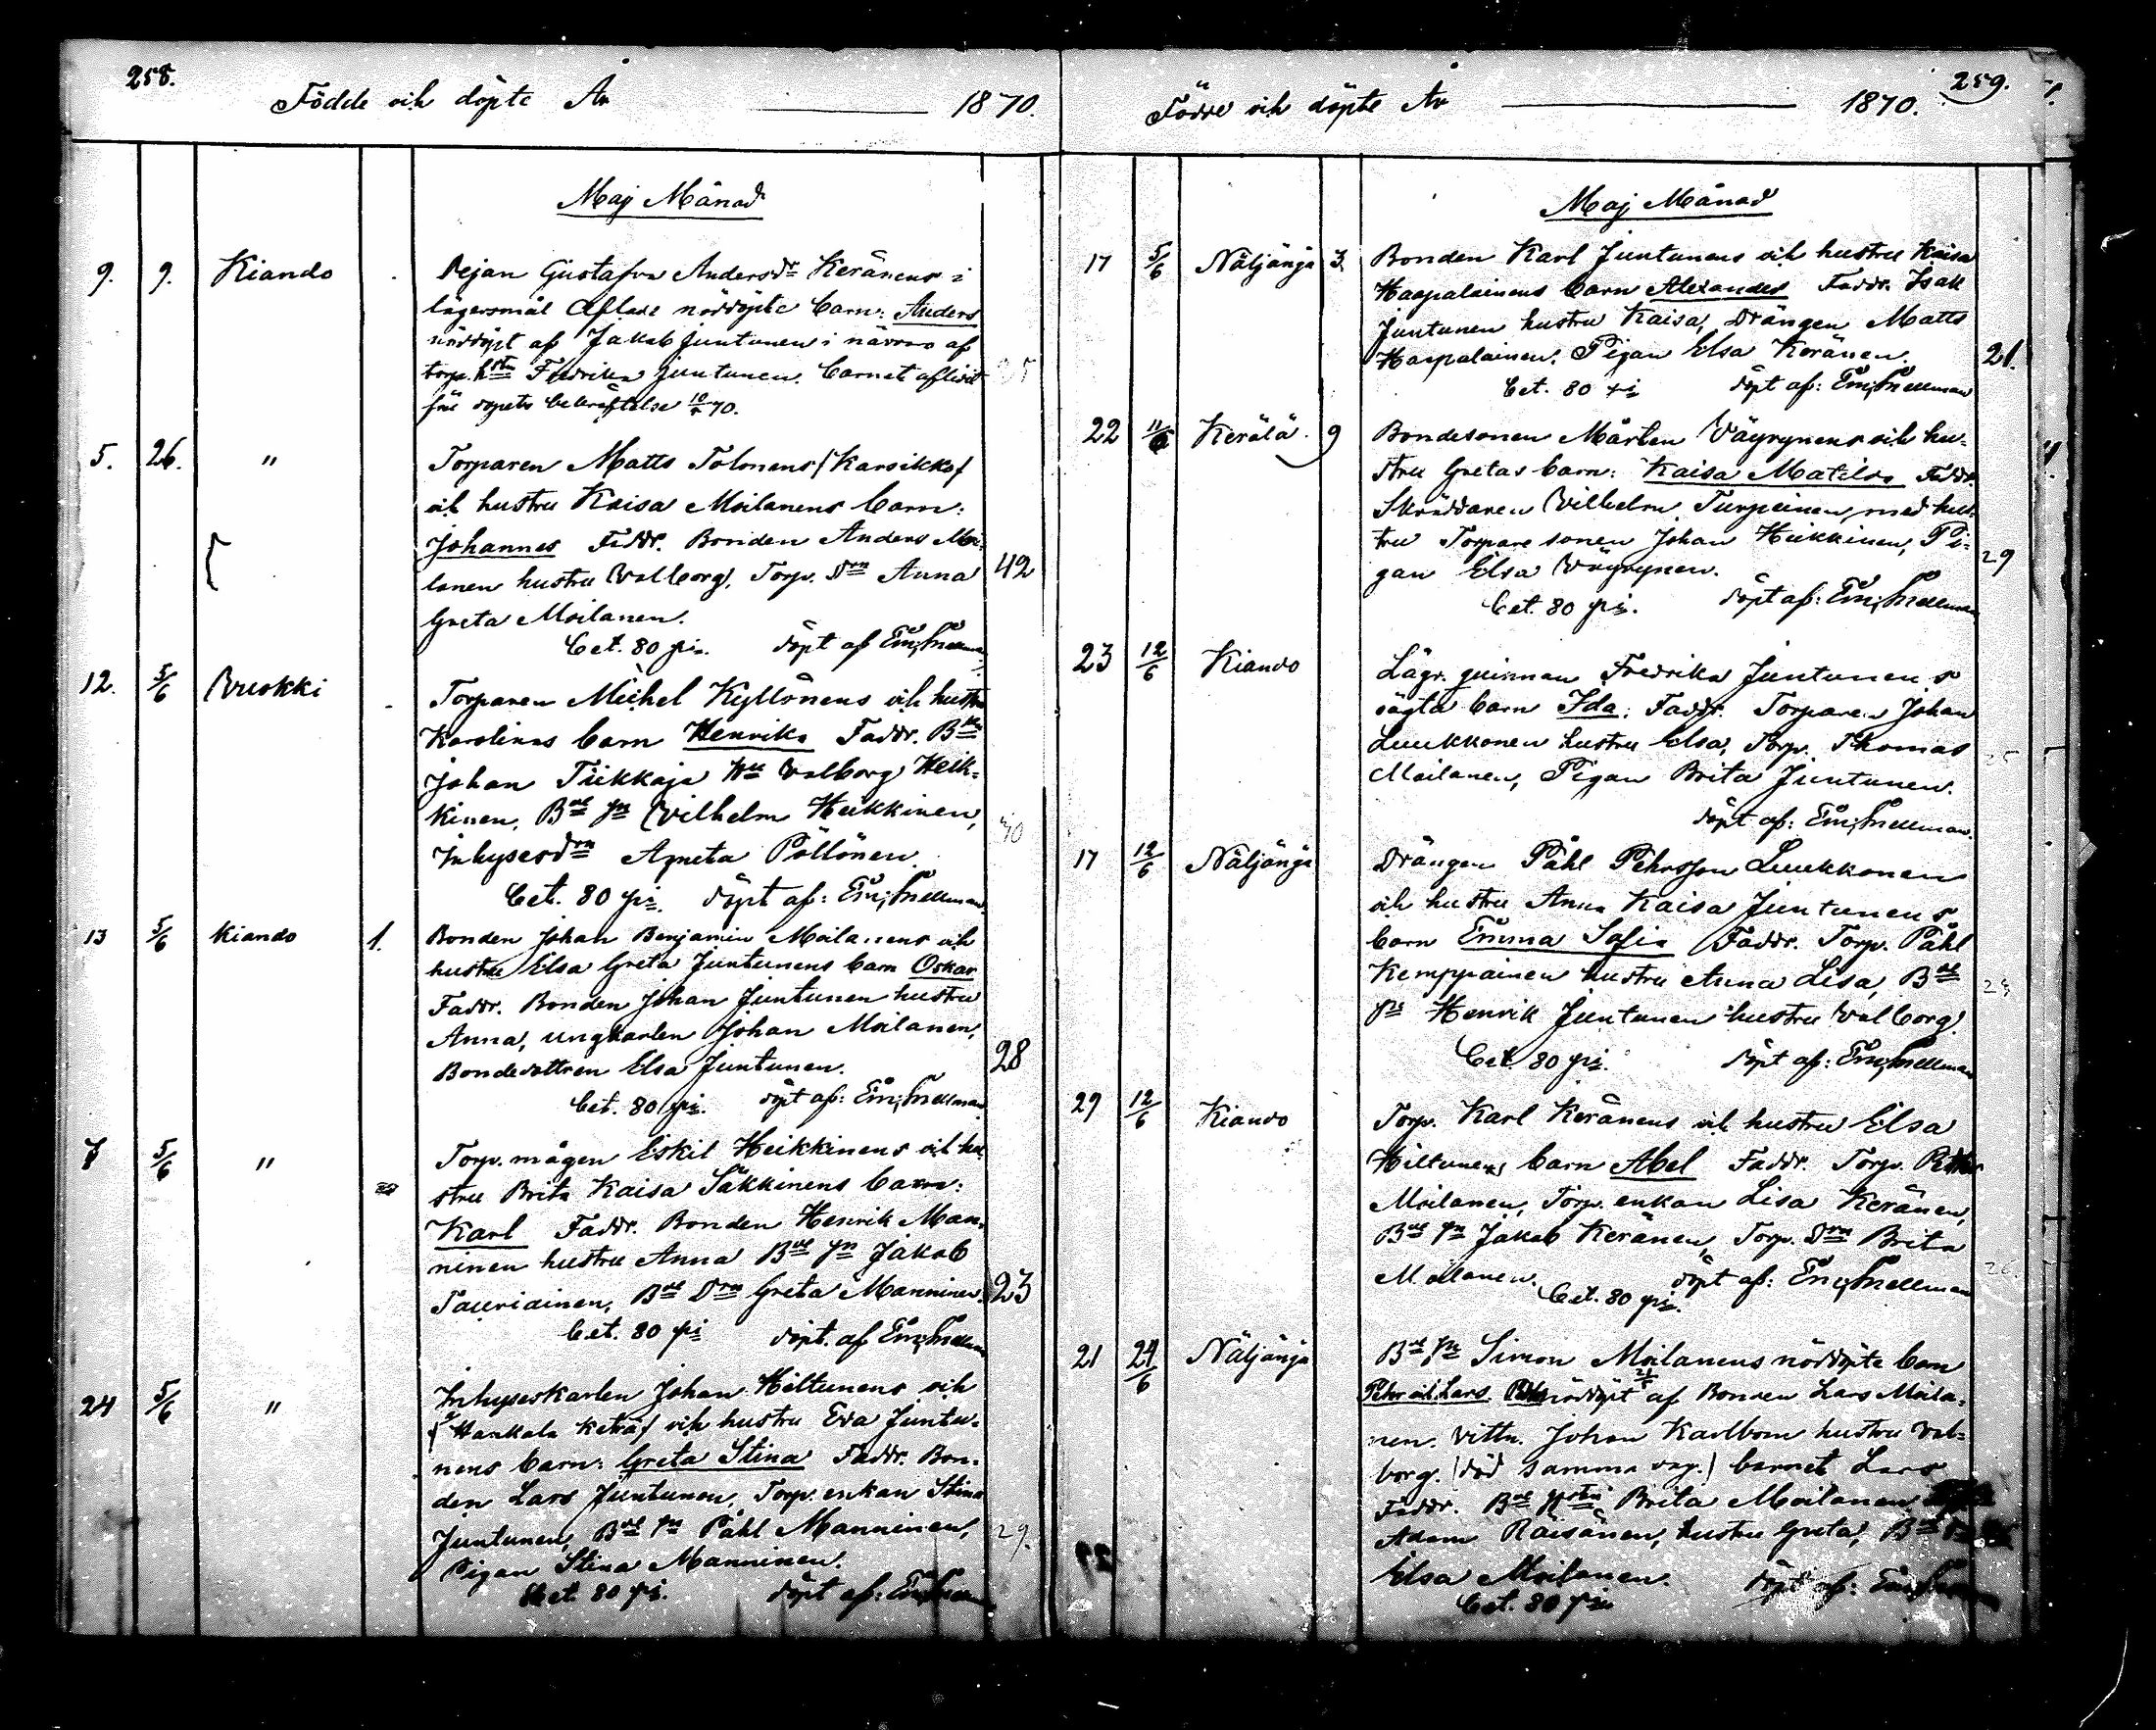 258.
Födde och döpte År 1870.
Maj Månad
9. 9. Kiando Pejan Gustafva Andersdr Keränens i
lägersmål aflade nöddöpte barn: Anders
nöddöpt af Jakob Juntunen i närvaro af
torp. hstn Fredrika Juntunen. Barnet aflidit
före dopets bekräftelse 10/5 70.
5. 26. " Torparen Matts Tolonens /Karsikko/
och hustru Kaisa Moilanens barn:
Johannes Faddr. Bonden Anders Moi-
lanen hustru Valborg, Torp. Drn Anna 42
Greta Moilanen.
Bet. 80 pi. döpt af Em. Snellman
12. 5/6 Vuokki Torparen Michel Kyllönens och hustru
Karolinas barn Henrika Faddr. Bdn
Johan Tiikkaja Hu Valborg Heik-
kinen, Bde Sn Vilhelm Heikkinen,
Inhysesdrn Agneta Pöllönen. 30
Bet. 80 pi. döpt af: Em. Snellman.
13 5/6 Kiando 1. Bonden Johan Benjamin Moilanens och
hustru Elsa Greta Juntunens barn Oskar
Faddr. Bonden Johan Juntunen hustru
Anna, ungkarlen Johan Moilanen,
Bondedottren Elsa Juntunen. 28
Bet. 80 pi. döpt af: Em. Snellman
7 5/6 " Torp. mågen Eskil Heikkinens och hu-
stru Brita Kaisa Säkkinens barn:
Karl Faddr. Bonden Henrik Man-
ninen hustru Anna Bde Sn Jakob
Tauriainen, Bde Drn Greta Manninen. 23
Bet. 80 pi döpt af Em. Snellman
24 5/6 " Inhyseskarlen Johan Hiltunens och
/Haukola Ketra/ och hustru Eva Juntu-
nens barn: Greta Stina Faddr. Bon-
den Lars Juntunen, Torp. enkan Stina
Juntunen, Bde Sn Påhl Manninen, 29.
Pigan Stina Manninen.
Bet. 80 pi. döpt af: Em. Snellman
259.
Födde och döpte År 1870.
Maj Månad
17 5/6 Näljänga 3. Bonden Karl Juntunens och hustru Kaisa
Haapalainens barn Alexander Faddr. Isak
Juntunen hustru Kaisa, Drängen Matts
Haapalainen, Pigan Elsa Keränen. 21.
Bet. 80 pi döpt af: Em. Snellman
22 11/6 Kerälä. 9 Bondesonen Mårten Väyrynens och hu-
stru Gretas barn: Kaisa Matilda Faddr.
Skräddaren Vilhelm Turpeinen, med hus-
tru Torpare sonen Johan Heikkinen, Pi-
gan Elsa Väyrynen. 29
Bet. 80 pi. döpt af: Em. Snellman
23 12/6 Kiando Lägr. quinnan Fredrika Juntunens
oägta barn Ida: Faddr. Torparen Johan
Luukkonen hustru Elsa, Torp. Thomas
Moilanen, Pigan Brita Juntunen. 25
döpt af: Em. Snellman.
17 12/6 Näljänga Drängen Påhl Pehrsson Luukkonen
och hustru Anna Kaisa Juntunens
barn Emma Sofia Faddr. Torp. Påhl
Kemppainen hustru Anna Lisa, Bde
Sn Henrik Juntunen hustru Valborg.
Bet 80 pi. döpt af: Em. Snellman
29 12/6 Kiando Torp. Karl Keränens och hustru Elsa
Hiltunens barn Abel Faddr. Torp. Petter
Moilanen, Torp. enkan Lisa Keränen,
Bde Sn Jakob Keränen, Torp. Drn Brita
Moilanen. döpt af: Em. Snellman
Bet. 80 pi.
21 24/6 Näljänga Bde Sn Simon Moilanens nöddöpte barn
Pehr och Lars nöddöpt af Bonden Lars Moila-
nen. Vittn. Johan Karlbom hustru Val-
borg. /död samma dag./ barnet Lars
Faddr. Bde Hstru Brita Moilanen
Adam Räisänen, hustru Greta, Bde
Elsa Moilanen. döpt af: Em. Snellman
Bet. 80 pi